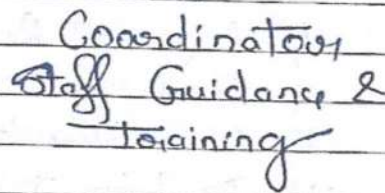 Coordinator
Staff Guidance &
Training